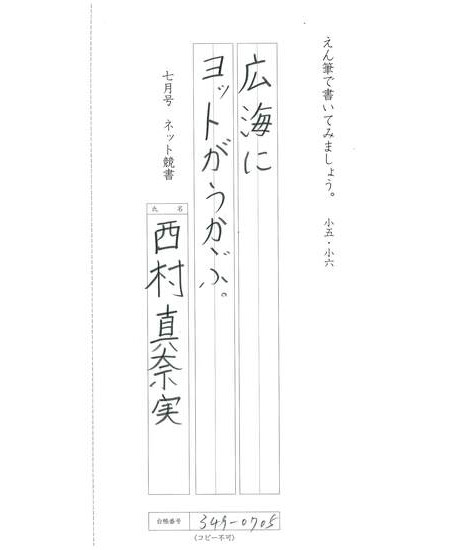 えん筆で書いてみましょう。 小五・小六
広海に
ヨットがうかぶ。
七月号 ネット競書
氏 名
西村真奈実
台帳番号 349-0705
(コピー不可)